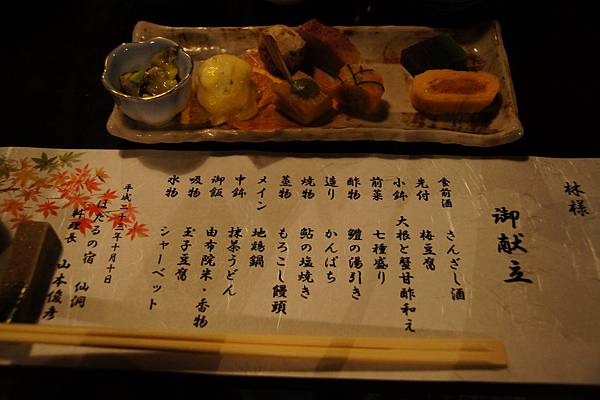 林様
御献立
食前酒 さんざし酒
先付 梅豆腐
小鉢 大根と蟹甘酢和え
前菜 七種盛り
酢物 鱧の湯引き
造り かんぱち
焼物 鮎の塩焼き
蒸物 もろこし饅頭
メイン 地鶏鍋
中鉢 抹茶うどん
御飯 由布院米・香物
吸物 玉子豆腐
水物 シャーベット
平成二十三年十月十日
ほたるの宿 仙洞
料理長 山本俊彦